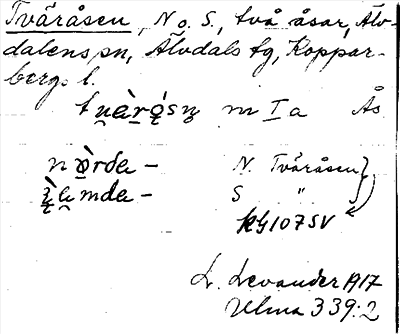 Tväråsen, N o. S., två åsar, Älv-
dalens sn, Älvdals tg, Koppar-
bergs l.
tu̯èrǫ́sn̥ m I a Ås
nòrde – N. Tväråsen
– S "
KG107SV
L. Levander 1917
Ulma 339:2